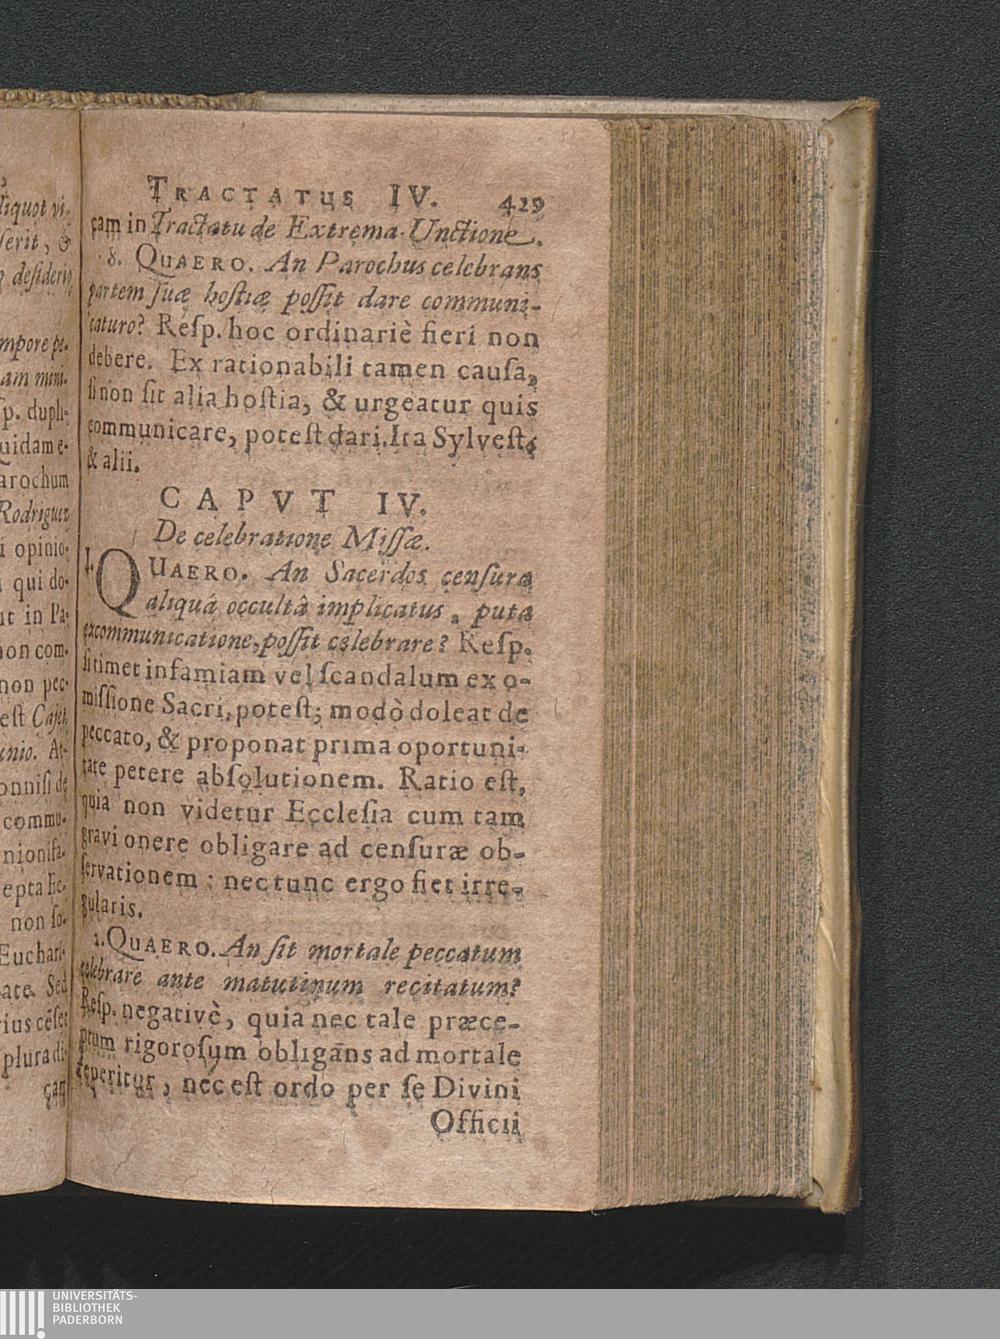 liquot vi-
serit, &
desiderio
mpore pe-
am mini-
sp. dupli-
uidam e-
arochum
Rodriguez
i opinio-
qui do-
it in Pa-
non com-
non pec-
est Cajet.
unio. At-
onnisi de
commu-
nionisa-
epta Ec-
non so-
Euchari-
ate. Sed
rius cēset
plura di-
çam
TRACTATUS IV. 429
çam in Tractatu de Extrema-Unctione.
8. QUAERO. An Parochus celebrans
partem suæ hostiæ possit dare communi-
caturo? Resp. hoc ordinariè fieri non
debere. Ex rationabili tamen causa,
si non sit alia hostia, & urgeatur quis
communicare, potest dari. Ita Sylvest.
& alii.
CAPVT IV.
De celebratione Missæ.
I. QUAERO. An Sacerdos censura
aliquâ occultâ implicatus, puta
excommunicatione, possit celebrare? Resp.
si timet infamiam vel scandalum ex o-
missione Sacri, potest; modò doleat de
peccato, & proponat prima oportuni-
tate petere absolutionem. Ratio est,
quia non videtur Ecclesia cum tam
gravi onere obligare ad censuræ ob-
servationem: nec tunc ergo fiet irre-
gularis.
2. QUAERO. An sit mortale peccatum
celebrare ante matutinum recitatum?
Resp. negativè, quia nec tale præce-
ptum rigorosum obligans ad mortale
reperitur, nec est ordo per se Divini
Officii
UNIVERSITÄTS-
BIBLIOTHEK
PADERBORN